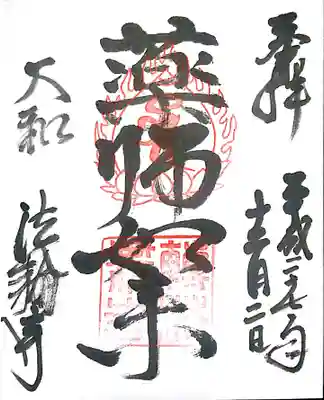 奉拝
平成二七年
十一月二日
薬師如来
大和
法輪寺